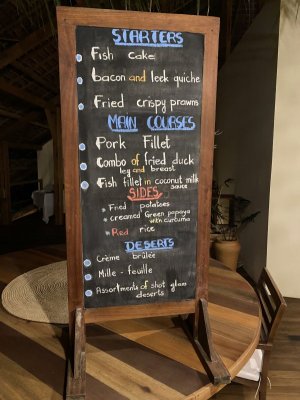 STARTERS
Fish cake
bacon and leek quiche
Fried crispy prawns
MAIN COURSES
Pork Fillet
Combo of fried duck
leg and breast
Fish fillet in coconut milk
sauce
SIDES
* Fried potatoes
* creamed Green papaya
with curcuma
* Red rice
DESERTS
Crème brûlée
Mille - feuille
Assortments of shot glass
deserts